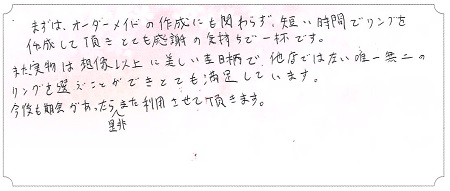 まずは、オーダーメイドの作成にも関わらず、短い時間でリングを
作成して頂きとても感謝の気持ちで一杯です。
また実物は想像以上に美しい杢目柄で、他店ではない唯一無二の
リングを選ぶことができとても満足しています。
今後も機会があったら是非また利用させて頂きます。